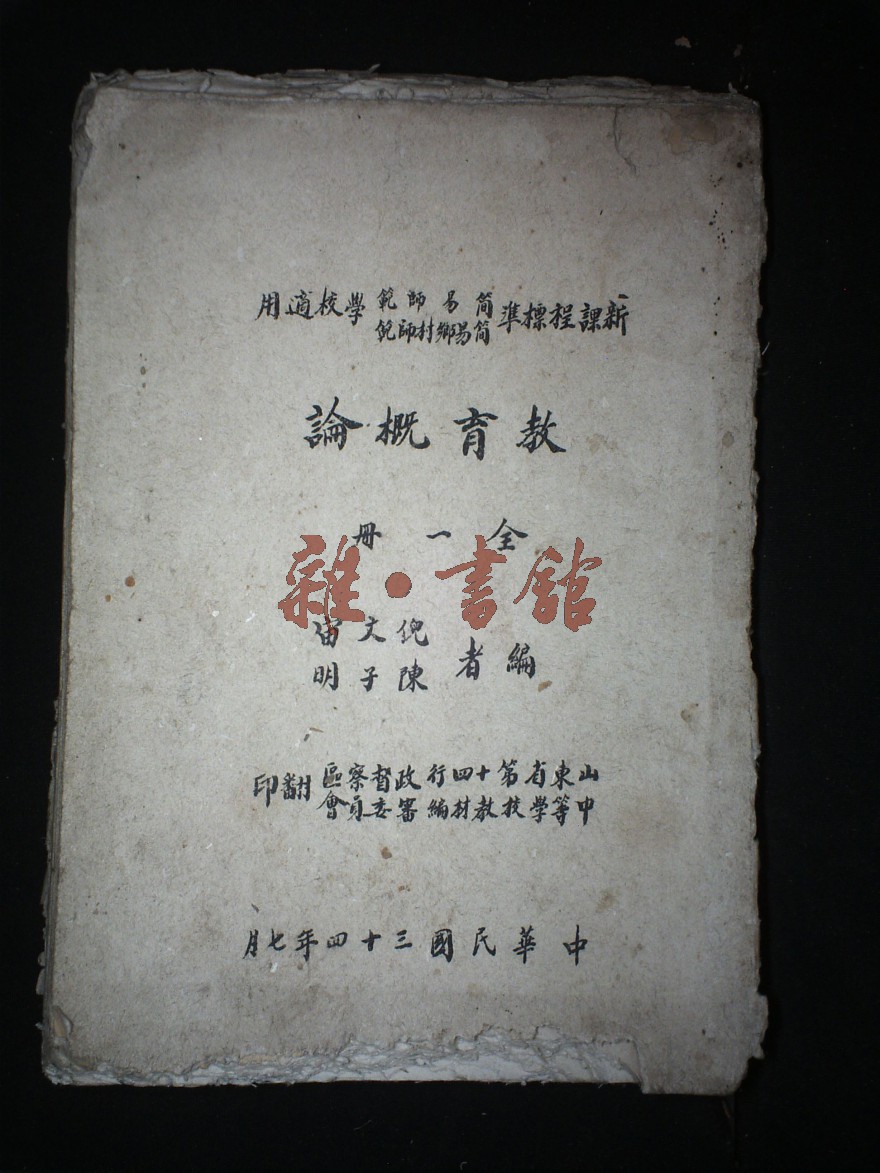 新課程標準簡易師範學校適用
簡易鄉村師範
教育概論
全一冊
編者 倪文宙
陳子明
山東省第十四行政督察區翻印
中等學校教材編審委員會
中華民國三十四年七月
雜·書館